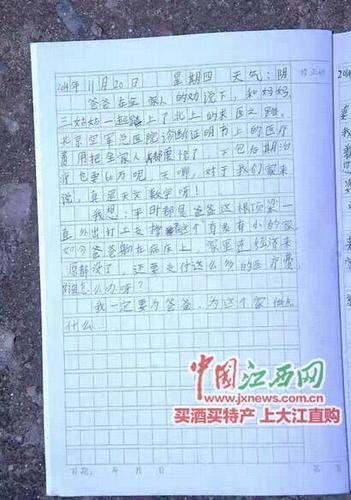 2014年 11月 20日 星期四 天气:阴
爸爸在全家人的劝说下,和妈妈,
三姑姑一起踏上了北上的求医之路。
北京空军总医院诊断证明书上的医疗
费用把全家人都 了,不包后期治
疗也要60万呢 天哪,对于我们家来
说,真是天文数字呀!
我想:平时都是爸爸这根顶梁一
直外出打工支撑着这个有老有小的家,
如今爸爸躺在病床上 家里连经济来
源都没了,还要支付这么多的医疗费,
怎么办呀?
我一定要为爸爸,为这个家做点
什么……
中国江西网
www.jxnews.com.cn
买酒买特产 上大江直购
日期: 年 月 日 第 页
2014